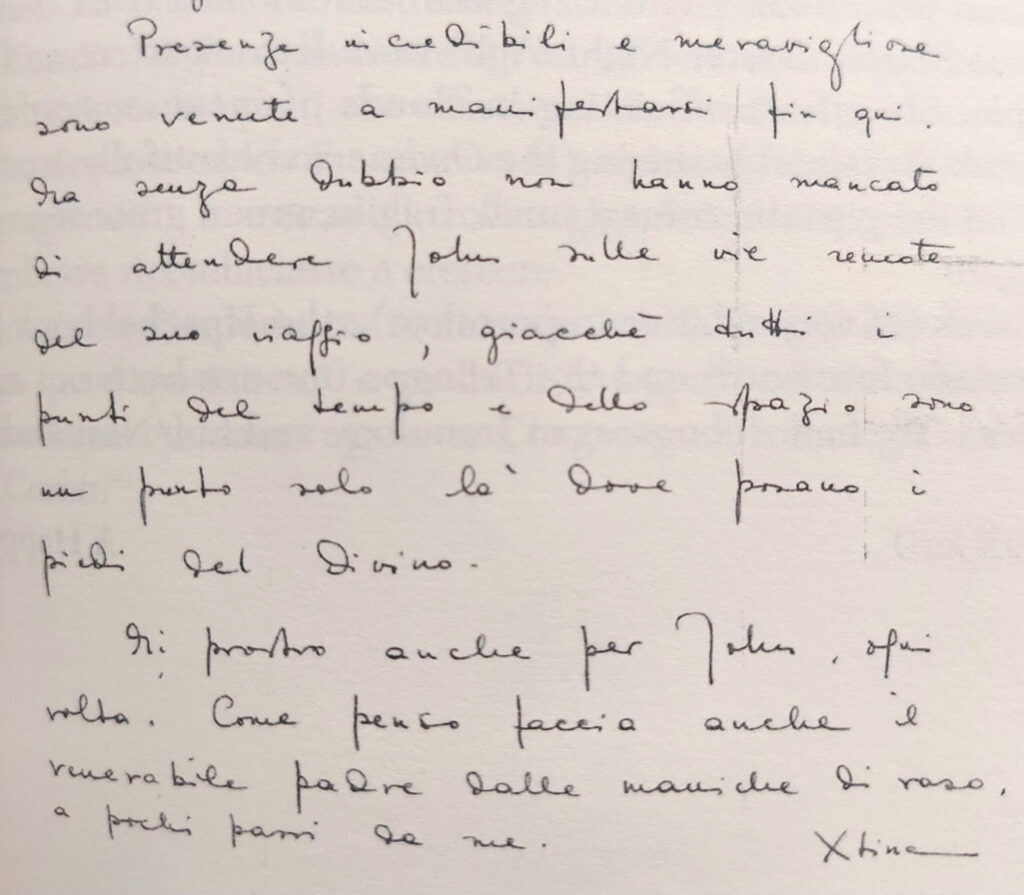 Presenze incredibili e meravigliose
sono venute a manifestarsi fin qui.
Ma senza dubbio non hanno mancato
di attendere John sulle vie remote
del suo viaggio, giacchè tutti i
punti del tempo e dello spazio sono
un punto solo là dove posano i
piedi del Divino.
Mi prostro anche per John, ogni
volta. Come penso faccia anche il
venerabile padre dalle maniche di raso,
a pochi passi da me.
Xtina